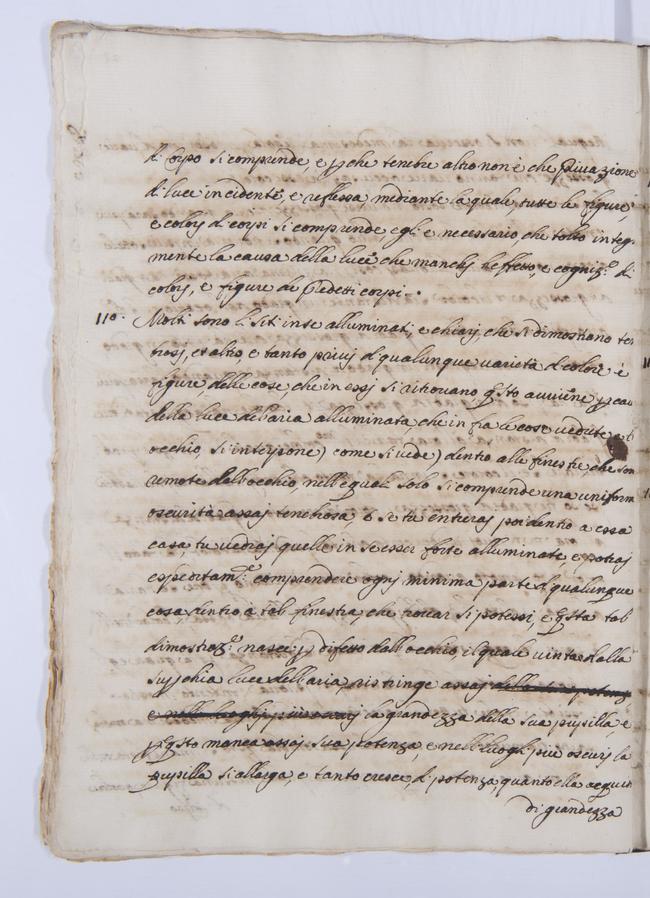 di corpo si comprende, e p che tenebre altro non è che privazione
di luce incidente, e reflessa mediante la quale, tutte le figure,
e colorj di corpi si comprende egli e necessario, che tolto integ-
mente la causa della luce che manchj l'effetto, e cogniz.e di
colorj, e figure de predetti corpi.
110. Molti sono li siti in se alluminati, e chiarj, che si dimostrano ten
brosj, et altro, e tanto privj di qualunque varietà di colore è
figure, delle cose, che in essj si ritrovano qsto avviene p cau
della luce de l'aria alluminata che in fra le cose vedute e l
occhio, si interpone) come si vede) dentro alle finestre, che son
remote dall'occhio, nelle quali solo si comprende una uniform
oscurità assaj tenebrosa, ò se tu entreraj poi dentro a essa
casa, tu vedraj quelle in se esser forte alluminate, e potraj
espeditam.te comprendere ognj minima parte di qualunque
cosa, dentro a tal finestra, che trovar si potessi, e qsta tal
dimostraz.e nasce p difetto dall'occhio, il quale vinta dalla
supchia luce dell'aria, ristringe assaj
la grandezza della sua pupilla, e
p qsto manca assaj sua potenza, e nelli luoghi più oscurj la
pupilla si allarga, e tanto cresce, di potenza, quanto ella acquis
di grandezza